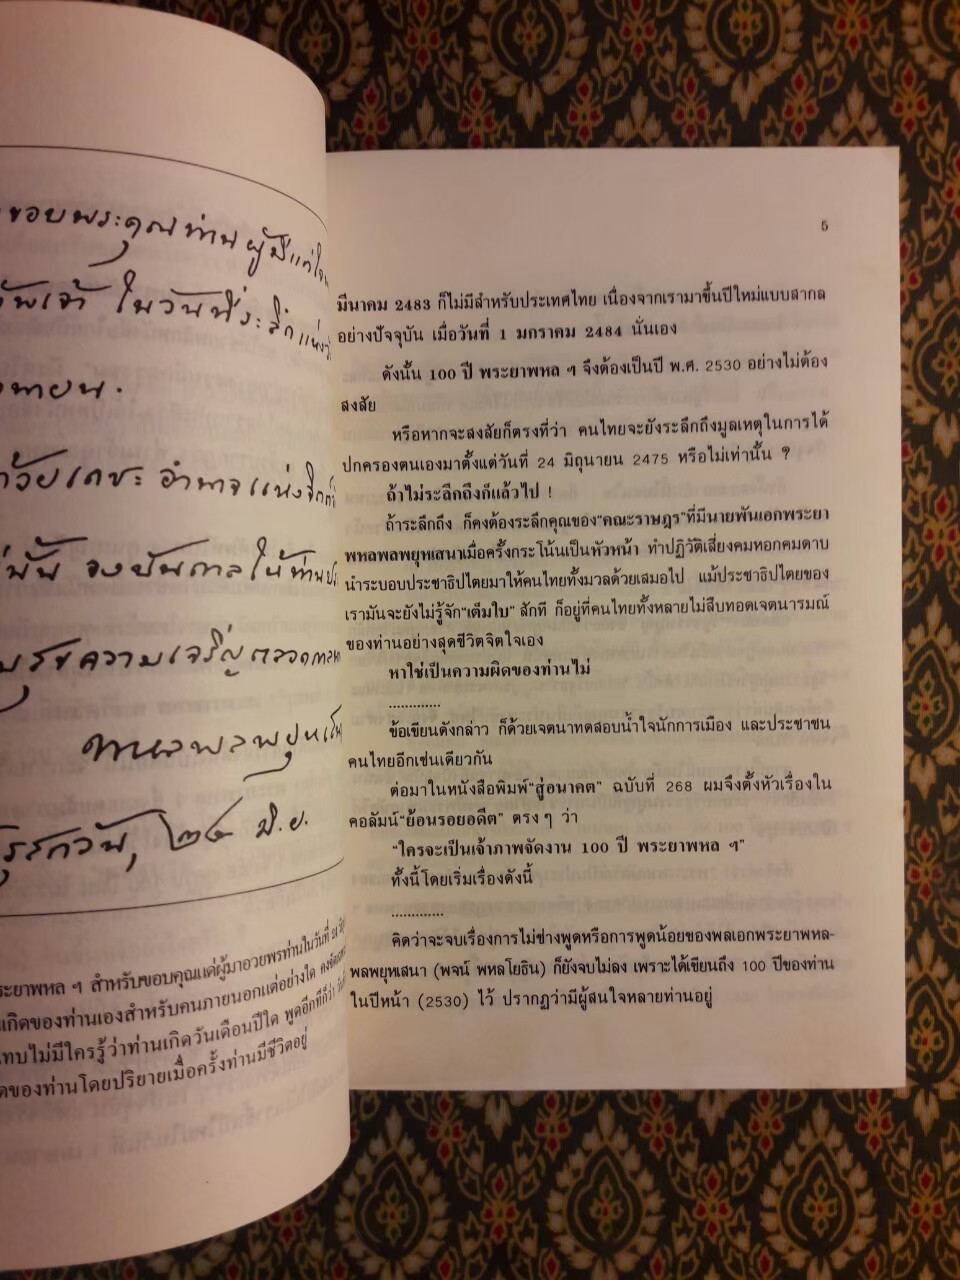 ขอบพระคุณท่านผู้มีแก่ใจ
ในวันที่ระลึกแห่ง
เดชะ อำนาจแห่ง
จงบันดาลให้ท่าน
สุขความเจริญตลอด
พหลพลพยุหเส
๒๔ มิ.ย.
ระยาพหล ฯ สำหรับขอบคุณแด่ผู้มาอวยพรท่านในวันที่
เกิดของท่านเองสำหรับคนภายนอกแต่อย่างใด
ทบไม่มีใครรู้ว่าท่านเกิดวันเดือนปีใด พูดอีกที่ก็ว่า
ดของท่านโดยปริยายเมื่อครั้งท่านมีชีวิตอยู่
5
มีนาคม 2483 ก็ไม่มีสำหรับประเทศไทย เนื่องจากเรามาขึ้นปีใหม่แบบสากล
อย่างปัจจุบัน เมื่อวันที่ 1 มกราคม 2484 นั่นเอง
ดังนั้น 100 ปี พระยาพหล ฯ จึงต้องเป็นปี พ.ศ. 2530 อย่างไม่ต้อง
สงสัย
หรือหากจะสงสัยก็ตรงที่ว่า คนไทยจะยังระลึกถึงมูลเหตุในการได้
ปกครองตนเองมาตั้งแต่วันที่ 24 มิถุนายน 2475 หรือไม่เท่านั้น ?
ถ้าไม่ระลึกถึงก็แล้วไป !
ถ้าระลึกถึง ก็คงต้องระลึกคุณของ“คณะราษฎร”ที่มีนายพันเอกพระยา
พหลพลพยุหเสนาเมื่อครั้งกระโน้นเป็นหัวหน้า ทำปฏิวัติเสี่ยงคมหอกคมดาบ
นำระบอบประชาธิปไตยมาให้คนไทยทั้งมวลด้วยเสมอไป แม้ประชาธิปไตยของ
เรามันจะยังไม่รู้จัก“เต็มใบ” สักที ก็อยู่ที่คนไทยทั้งหลายไม่สืบทอดเจตนารมณ์
ของท่านอย่างสุดชีวิตจิตใจเอง
หาใช่เป็นความผิดของท่านไม่
.............
ข้อเขียนดังกล่าว ก็ด้วยเจตนาทดสอบน้ำใจนักการเมือง และประชาชน
คนไทยอีกเช่นเดียวกัน
ต่อมาในหนังสือพิมพ์ “สู่อนาคต” ฉบับที่ 268 ผมจึงตั้งหัวเรื่องใน
คอลัมน์“ย้อนรอยอดีต” ตรง ๆ ว่า
“ใครจะเป็นเจ้าภาพจัดงาน 100 ปี พระยาพหล ฯ”
ทั้งนี้โดยเริ่มเรื่องดังนี้
.............
คิดว่าจะจบเรื่องการไม่ช่างพูดหรือการพูดน้อยของพลเอกพระยาพหล-
พลพยุหเสนา (พจน์ พหลโยธิน) ก็ยังจบไม่ลง เพราะได้เขียนถึง 100 ปีของท่าน
ในปีหน้า (2530) ไว้ ปรากฏว่ามีผู้สนใจหลายท่านอยู่